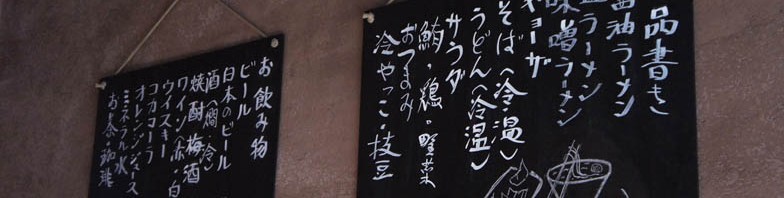 品書き
醤油ラーメン
塩ラーメン
味噌ラーメン
ギョーザ
そば（冷・温）
うどん（冷温）
サラダ
鮪・鶏・野菜
おつまみ
冷やっこ・枝豆
お飲み物
ビール
日本のビール
酒（燗冷）
焼酎 梅酒
ワイン（赤・白
ウイスキー
コカコーラ
オレンジジュース
ミネラル水
お茶・珈琲